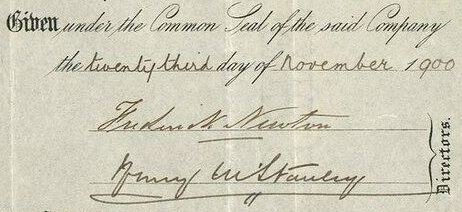 Given under the Common Seal of the said Company
the twenty third day of November 1900
Frederick Newton
Stanley
Directors.